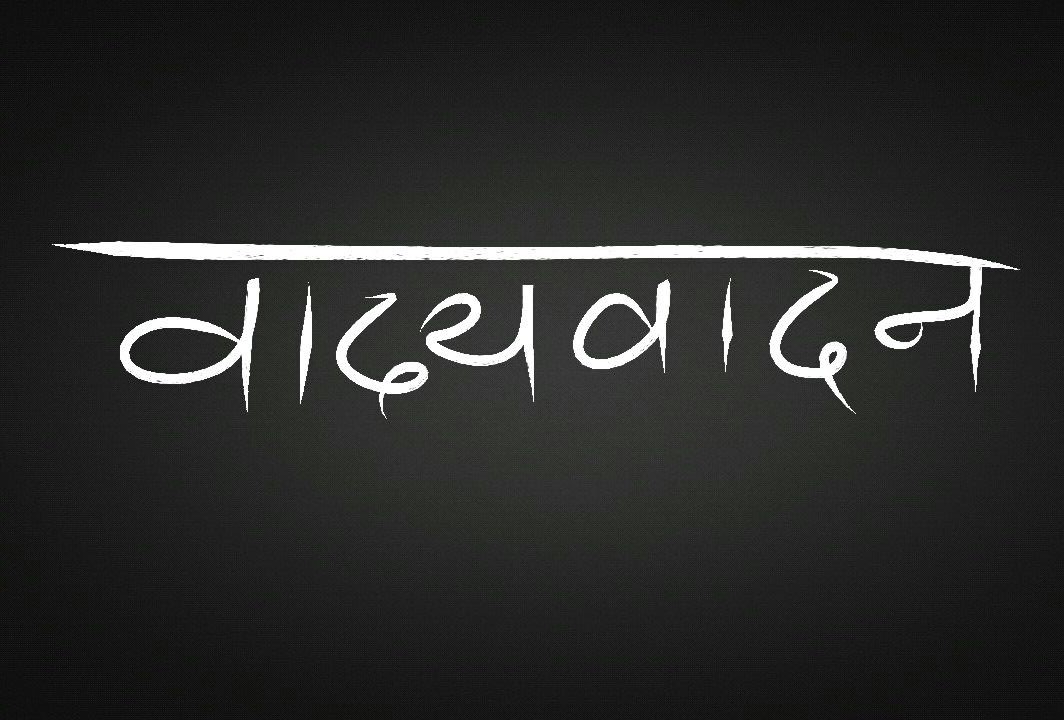 वादयवादन